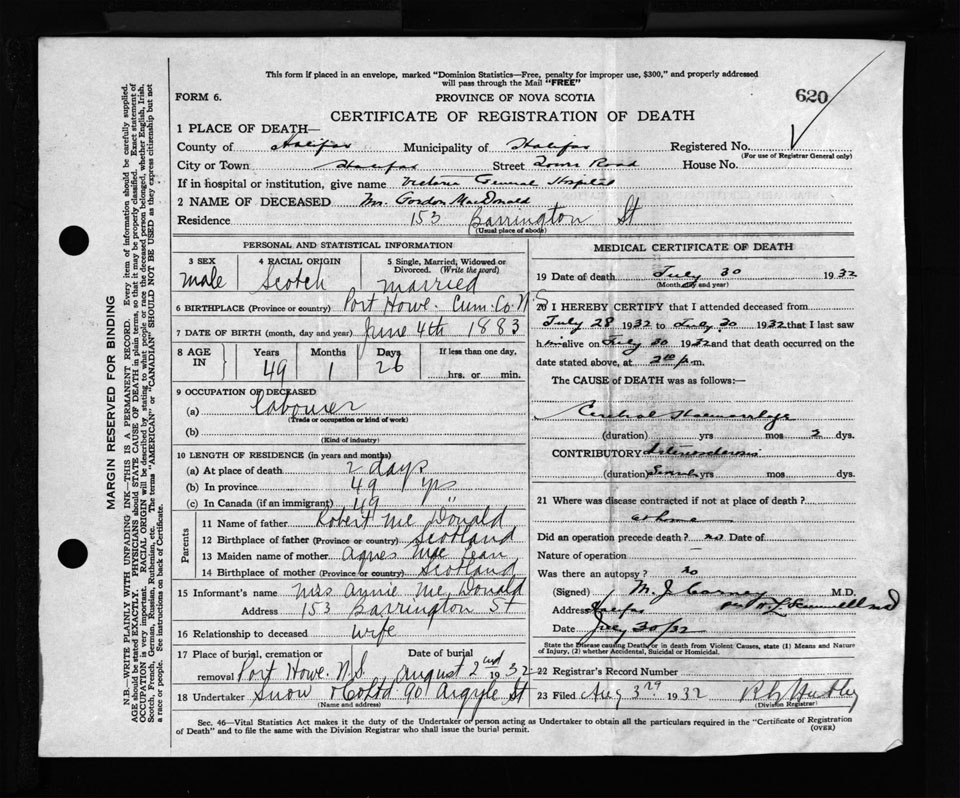 This form if placed in an envelope, marked "Dominion Statistics—Free, penalty for improper use, $300," and properly addressed
will pass through the Mail "FREE"
FORM 6.
PROVINCE OF NOVA SCOTIA
620
CERTIFICATE OF REGISTRATION OF DEATH
1 PLACE OF DEATH—
County of Halifax Municipality of Halifax Registered No.
(For use of Registrar General only)
City or Town Halifax Street Tower Road House No.
If in hospital or institution, give name Victoria General Hospital
2 NAME OF DECEASED Mr. Gordon MacDonald
Residence 153 Barrington St
(Usual place of abode)
PERSONAL AND STATISTICAL INFORMATION
3 SEX
male
4 RACIAL ORIGIN
Scotch
5 Single, Married, Widowed or
Divorced. (Write the word)
married
6 BIRTHPLACE (Province or country) Port Howe. Cum. Co. N S
7 DATE OF BIRTH (month, day and year) June 4th 1883
8 AGE
IN
Years
49
Months
1
Days
26
If less than one day,
hrs. or min.
9 OCCUPATION OF DECEASED
(a) Labourer
(Trade or occupation or kind of work)
(b)
(Kind of industry)
10 LENGTH OF RESIDENCE (in years and months)
(a) At place of death 2 days
(b) In province 49 yrs
(c) In Canada (if an immigrant) 49 "
Parents
11 Name of father Robert Mc Donald
12 Birthplace of father (Province or country) Scotland
13 Maiden name of mother Agnes Mac Lean
14 Birthplace of mother (Province or country) Scotland
15 Informant's name Miss Annie Mc Donald
Address 153 Barrington St
16 Relationship to deceased wife
17 Place of burial, cremation or
removal Port Howe. N.S.
Date of burial
August 2nd 1932
18 Undertaker Snow & Co Ltd 90 Argyle St
(Name and address)
MEDICAL CERTIFICATE OF DEATH
19 Date of death July 30 1932
(Month, day and year)
20 I HEREBY CERTIFY that I attended deceased from
July 28 1932 to July 30 1932 that I last saw
him alive on July 30 1932 and that death occurred on the
date stated above, at 2 p.m.
The CAUSE of DEATH was as follows:—
Cerebral Haemorrhage
(duration) yrs mos 2 dys.
CONTRIBUTORY Arteriosclerosis
(duration) Several yrs mos dys.
21 Where was disease contracted if not at place of death?
at home
Did an operation precede death? no Date of
Nature of operation
Was there an autopsy? no
(Signed) M. J. Carney M.D.
Address Halifax
Date July 30/32
State the Disease causing Death, or in death from Violent Causes, state (1) Means and Nature
of Injury, (2) whether Accidental, Suicidal or Homicidal.
22 Registrar's Record Number
23 Filed Aug 3rd 1932
(Division Registrar)
Sec. 46—Vital Statistics Act makes it the duty of the Undertaker or person acting as Undertaker to obtain all the particulars required in the "Certificate of Registration
of Death" and to file the same with the Division Registrar who shall issue the burial permit.
(OVER)
MARGIN RESERVED FOR BINDING
N.B.—WRITE PLAINLY WITH UNFADING INK—THIS IS A PERMANENT RECORD. Every item of information should be carefully supplied.
AGE should be stated EXACTLY. PHYSICIANS should STATE CAUSE OF DEATH in plain terms, so that it may be properly classified. Exact statement of
OCCUPATION is very important. RACIAL ORIGIN will be described by stating to what people or race the deceased person belonged, whether English, Irish,
Scotch, French, German, Russian, Ruthenian, etc. The terms "AMERICAN" or "CANADIAN" SHOULD NOT BE USED as they express citizenship but not
a race or people. See instructions on back of Certificate.